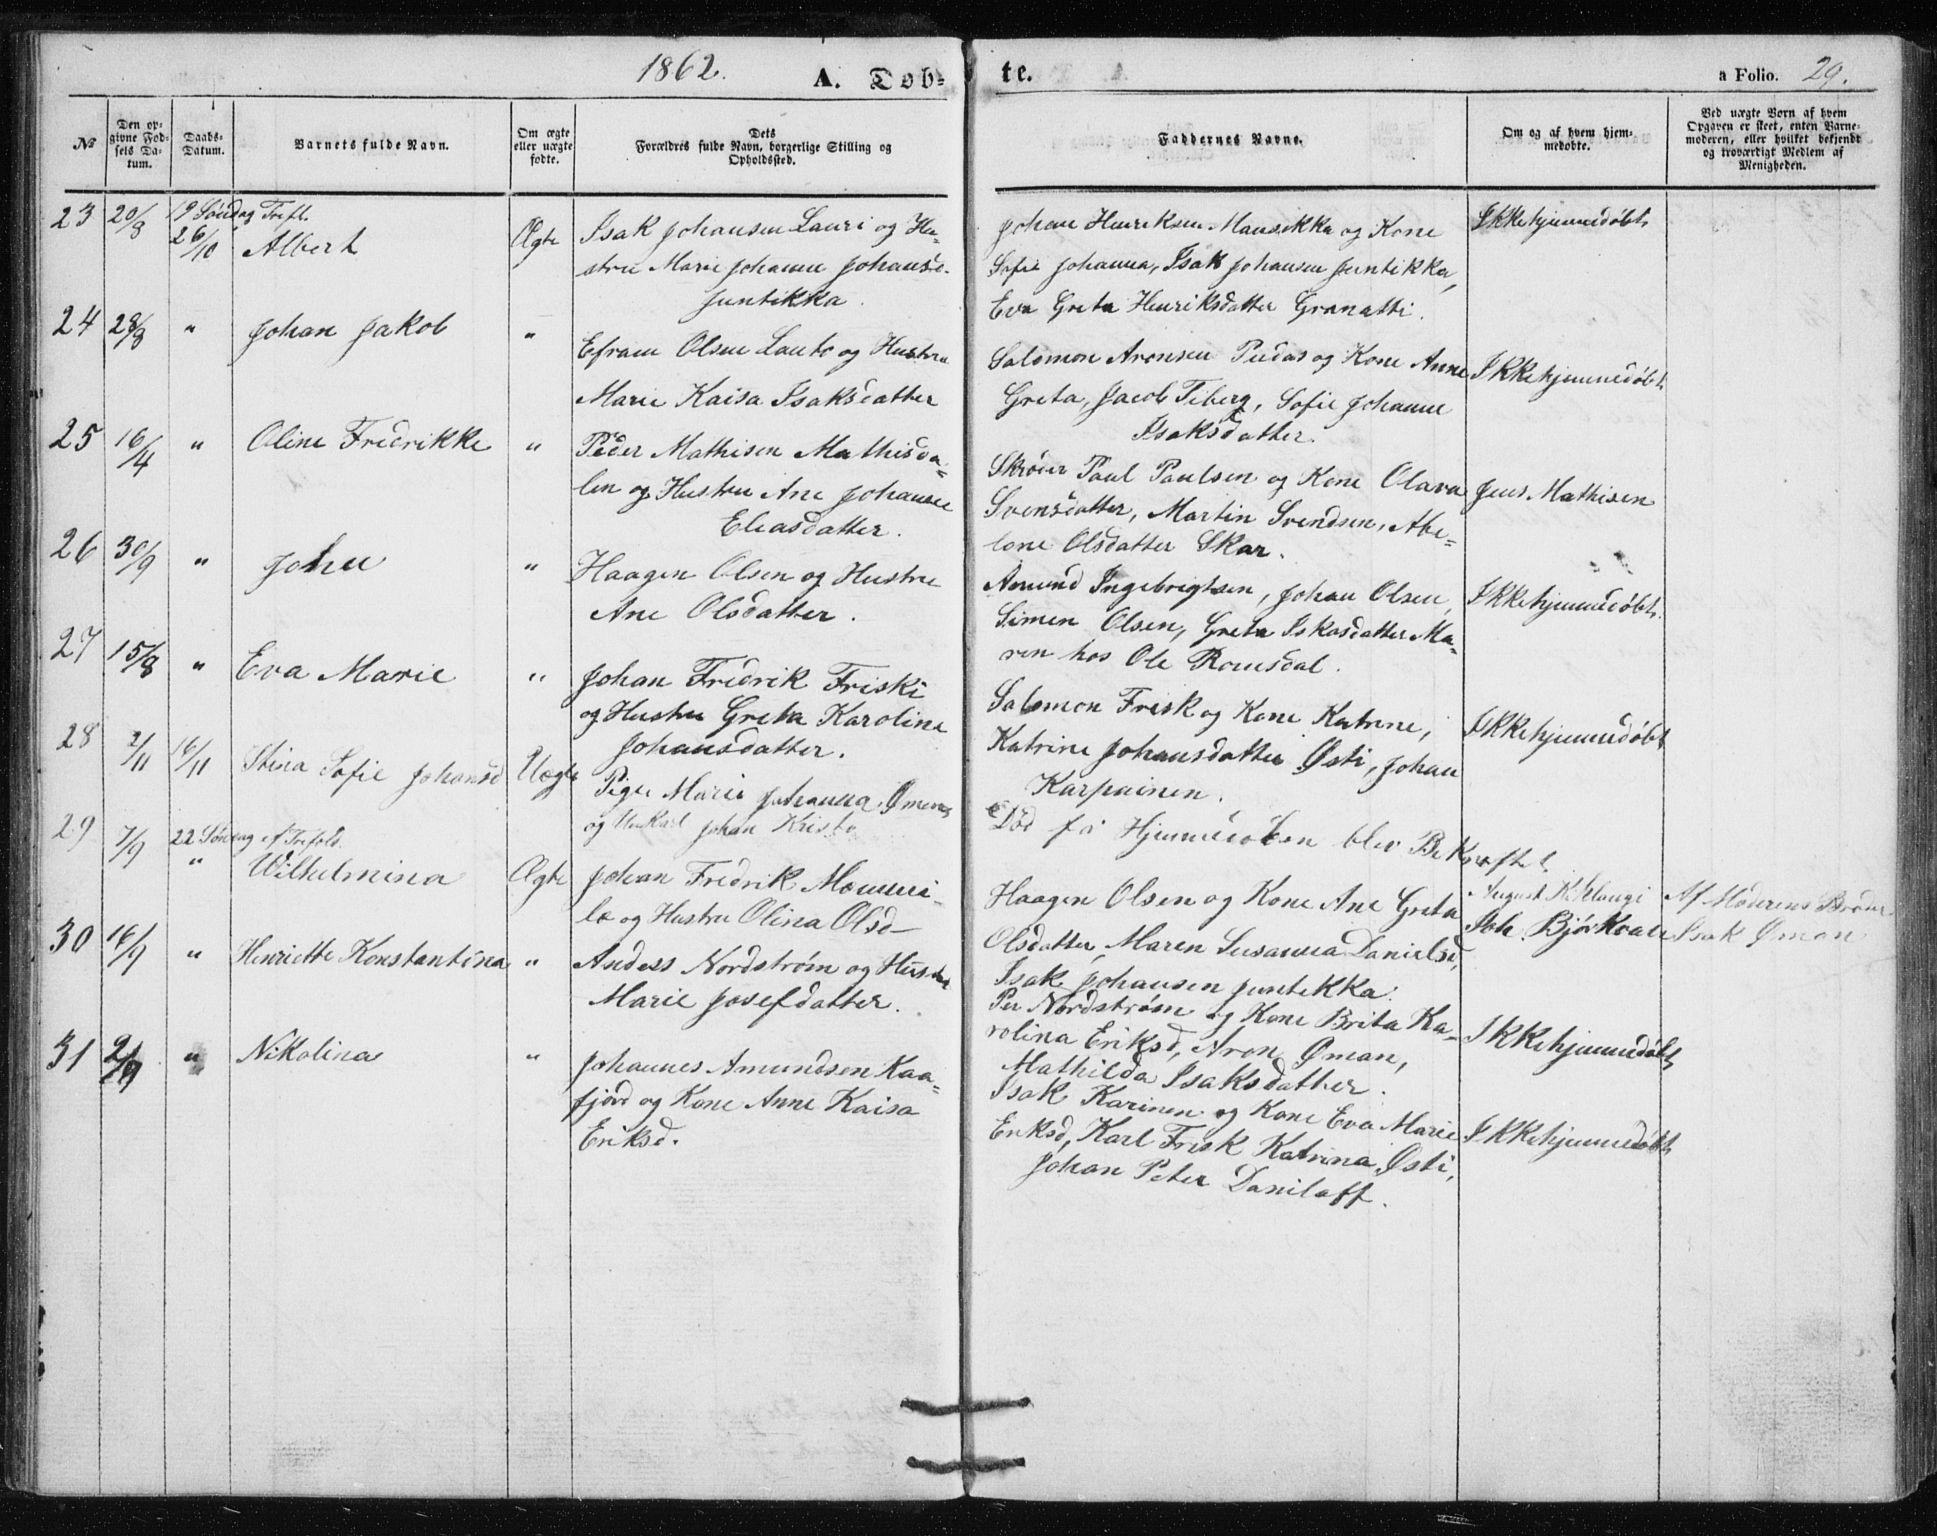 1862. A. Døb-
te. a Folio. 29.
№
Den op-
givne Fød-
sels Da-
tum.
Daabs-
Datum.
Barnets fulde Navn.
Om ægte
eller uægte
fødte.
Dets
Forældres fulde Navn, borgerlige Stilling og
Opholdssted.
Faddernes Navne.
Om og af hvem hjem-
medøbte.
Ved uægte Børn af hvem
Opgaven er skeet, enten Barne-
moderen, eller hvilket bekjendt
og troværdigt Medlem af
Menigheden.
23 20/8 19 Søndag Trefl.
26/10 Albert Ægte
Isak Johansen Lauri og Hu-
stru Marie Johanne Johansd.
Juntikka.
Johan Henriksen Mansikka og Kone
Sofie Johanna, Isak Johansen Juntikka,
Eva Greta Henriksdatter Granatti.
Ikke hjemmedøbt
24 28/8 " Johan Jakob "
Efraim Olsen Lauto og Hustru
Marie Kaisa Isaksdatter
Salomon Aronsen Pudas og Kone Anne
Greta, Jacob Fiberg, Sofie Johanne
Isaksdatter.
Ikke hjemmedøbt
25 16/4 " Oline Fredrikke "
Peder Mathisen Mathisda-
len og Hustru Ane Johanne
Eliasdatter.
Paul Paulsen og Kone Olava
Svensdatter, Martin Svendsen, Abe-
lone Olsdatter Skar.
Jens Mathisen
26 30/9 " John "
Haagen Olsen og Hustru
Ane Olsdatter.
Amund Ingebrigtsen, Johan Olsen,
Simen Olsen, Greta Isksdatter Ma-
ren hos Ole Romsdal.
Ikke hjemmedøbt
27 15/8 " Eva Marie "
Johan Fredrik Friski
og Hustru Greta Karolina
Johansdatter.
Salomon Frisk og Kone Katrine,
Katrine Johansdatter Østi, Johan
Karpainen.
Ikke hjemmedøbt
28 2/11 16/11 Stina Sofie Johansd Uægte
Pige Marie Johanna Øman
og Ukarl Johan Kristo
Død før Hjemmedøben blev Bekræftet
August
Af Moderens Broder
Isak Øman
29 7/9 22 Søndag ef Trefold.
" Wilhelmina Ægte
Johan Fredrik Mommi-
la og Hustru Olina Olsd
Haagen Olsen og Kone Ane Greta
Olsdatter, Maren Susanna Danielsd,
Isak Johansen Juntikka.
Joh. Bjørkvall
30 16/9 " Henriette Konstantina "
Anders Nordstrøm og Hustru
Marie Josefdatter.
Per Nordstrøm og Kone Brita Ka-
rolina Eriksd, Aron Øman,
Mathilda Isaksdatter.
Ikke hjemmedøbt
31 2/9 " Nikolina "
Johannes Amundsen Kaa-
fjord og Kone Anne Kaisa
Eriksd.
Isak Karinen og Kone Eva Marie
Eriksd, Karl Frisk Katrina Østi,
Johan Peter Daniloff.
Ikke hjemmedøbt